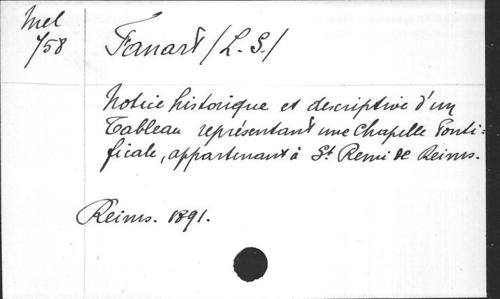 Mel
758
Fanart (L. S.)
Notice historique et descriptive d'un
Tableau représentant une Chapelle Ponti-
ficale, appartenant à St Remi de Reims.
Reims. 1891.